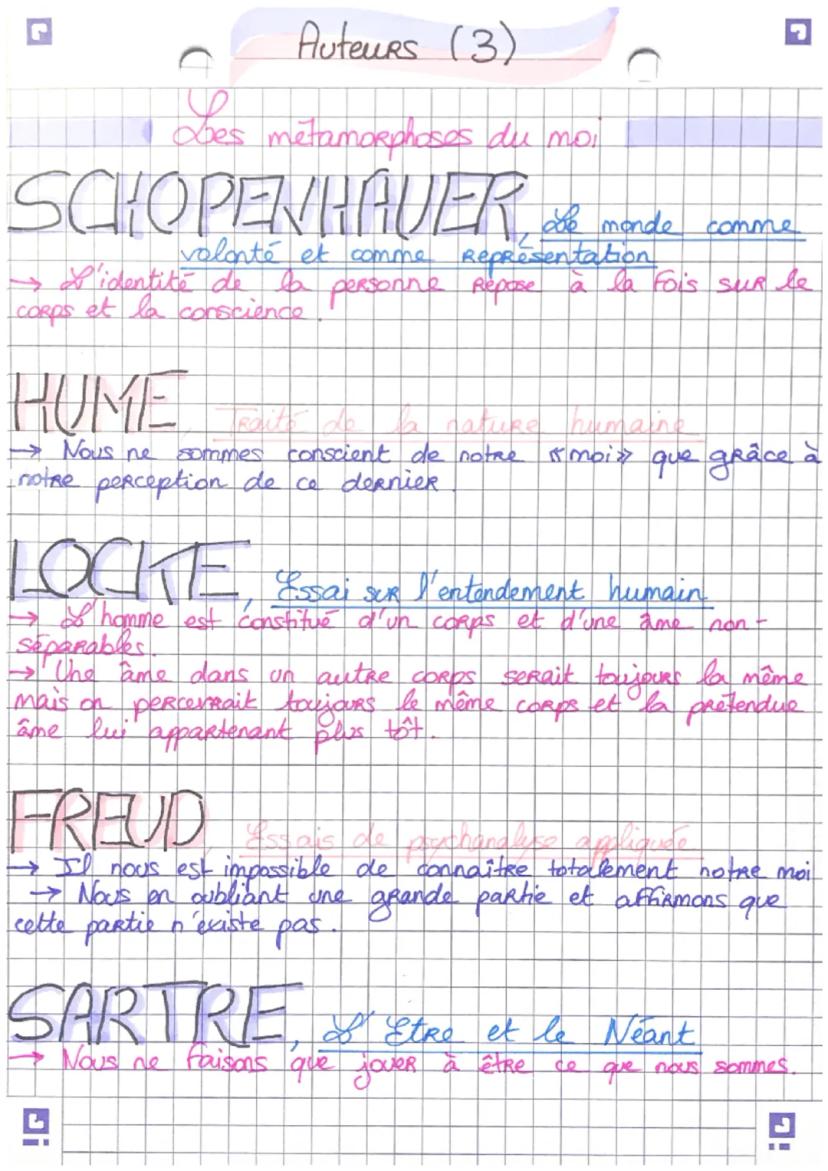 Auteurs (3)
Les métamorphoses du moi
SCHOPENHAUER, Le monde comme
volonté et comme représentation
→ L'identité de la personne repose à la fois sur le
corps et la conscience.
HUME, Traité de la nature humaine
→ Nous ne sommes conscient de notre «moi» que grâce à
notre perception de ce dernier.
LOCKE, Essai sur l'entendement humain
→ L'homme est constitué d'un corps et d'une âme non-
séparables.
→ Une âme dans un autre corps serait toujours la même
mais on percevrait toujours le même corps et la prétendue
âme lui appartenant plus tôt.
FREUD, Essais de psychanalyse appliquée
→ Il nous est impossible de connaître totalement notre moi
→ Nous en oubliant une grande partie et affirmons que
cette partie n'existe pas.
SARTRE, L'Etre et le Néant
→ Nous ne faisons que jouer à être ce que nous sommes.